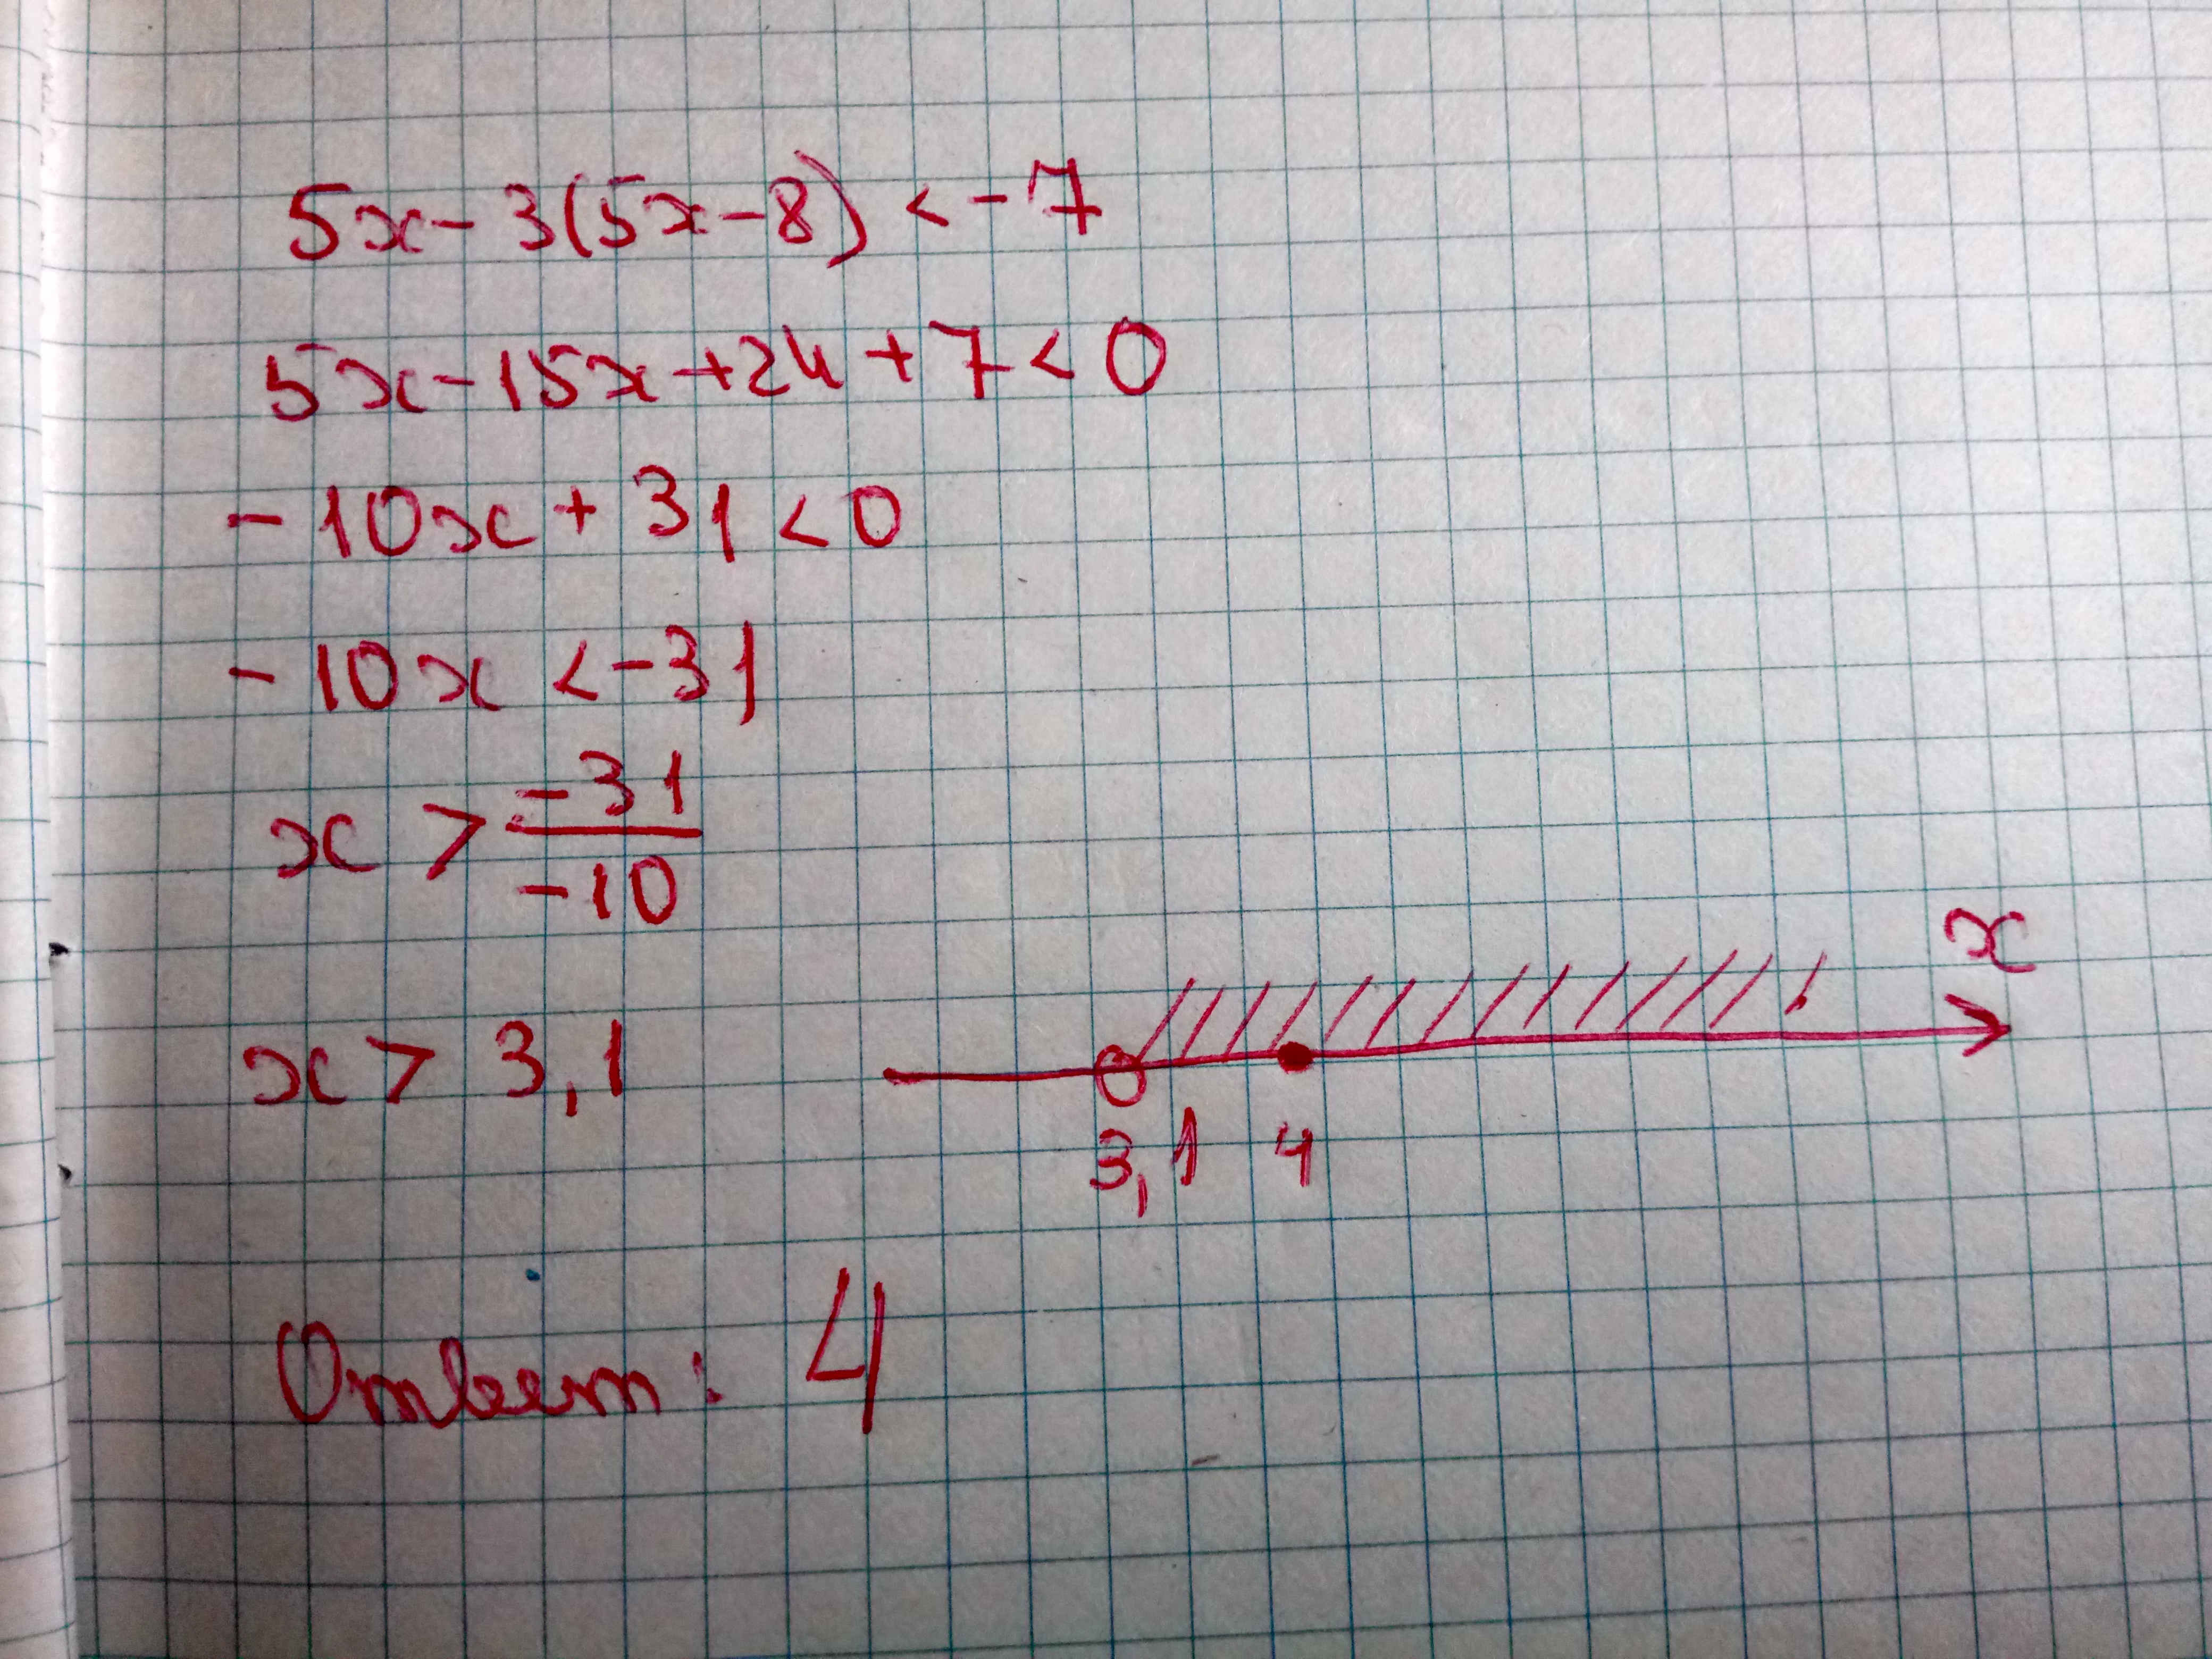 5x - 3(5x - 8) < -7
5x - 15x + 24 + 7 < 0
- 10x + 31 < 0
- 10x < -31
x > -31/-10
x > 3,1
x
3,1 4
Ответ: 4